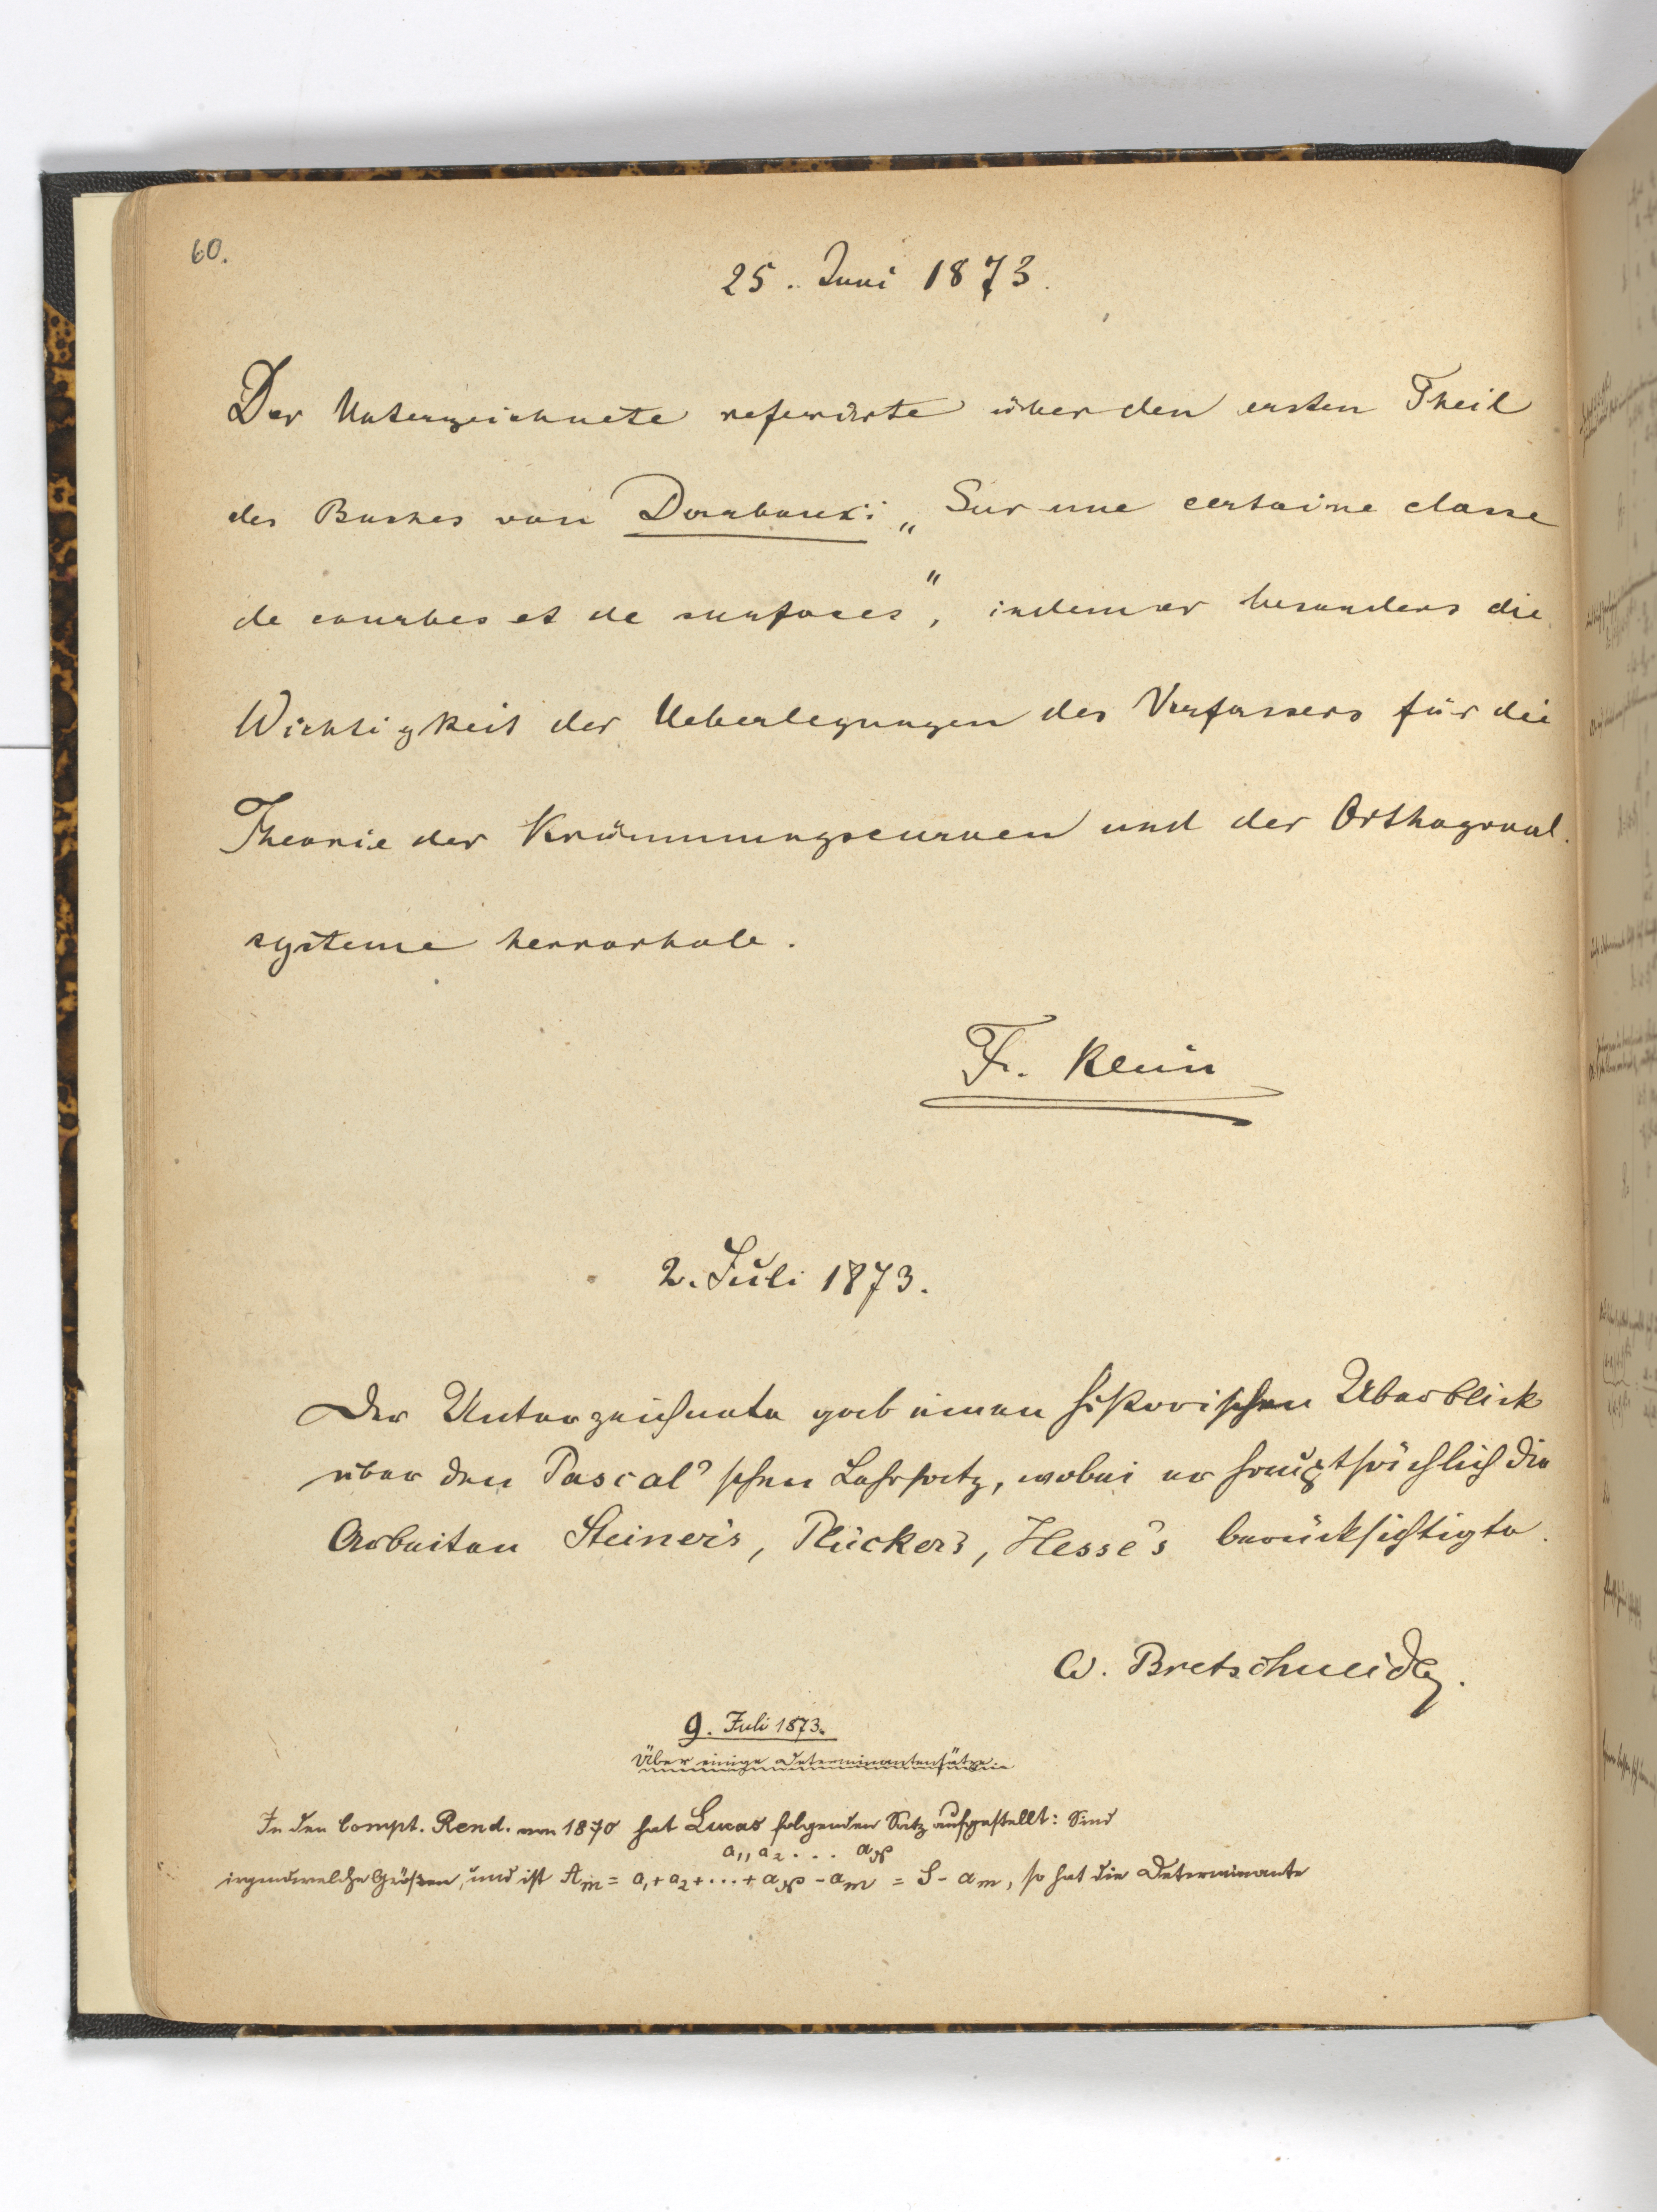 60.
25. Juni 1873.
Der Unterzeichnete referirte über den ersten Theil
des Buches von Darboux: „Sur une certaine classe
de courbes et de surfaces", indem er besonders die
Wichtigkeit der Ueberlegungen des Verfassers für die
Theorie der Krümmungscurven und der Orthogonal-
systeme hervorhob.
Fr. Klein
2. Juli 1873.
Der Unterzeichnete gab einen historischen Überblick
über den Pascal'schen Lehrsatz, wobei er hauptsächlich die
Arbeiten Steiner's, Plücker's, Hesse's berücksichtigte.
W. Bretschneider.
9. Juli 1873.
Über einige Determinantensätze.
In den Compt. Rend. von 1870 hat Lucas folgenden Satz aufgestellt: Sind
a₁, a₂ . . . aₙ
irgendwelche Größen, und ist Aₘ = a₁ + a₂ + ... + aₙ - aₘ = S - aₘ, so hat die Determinante